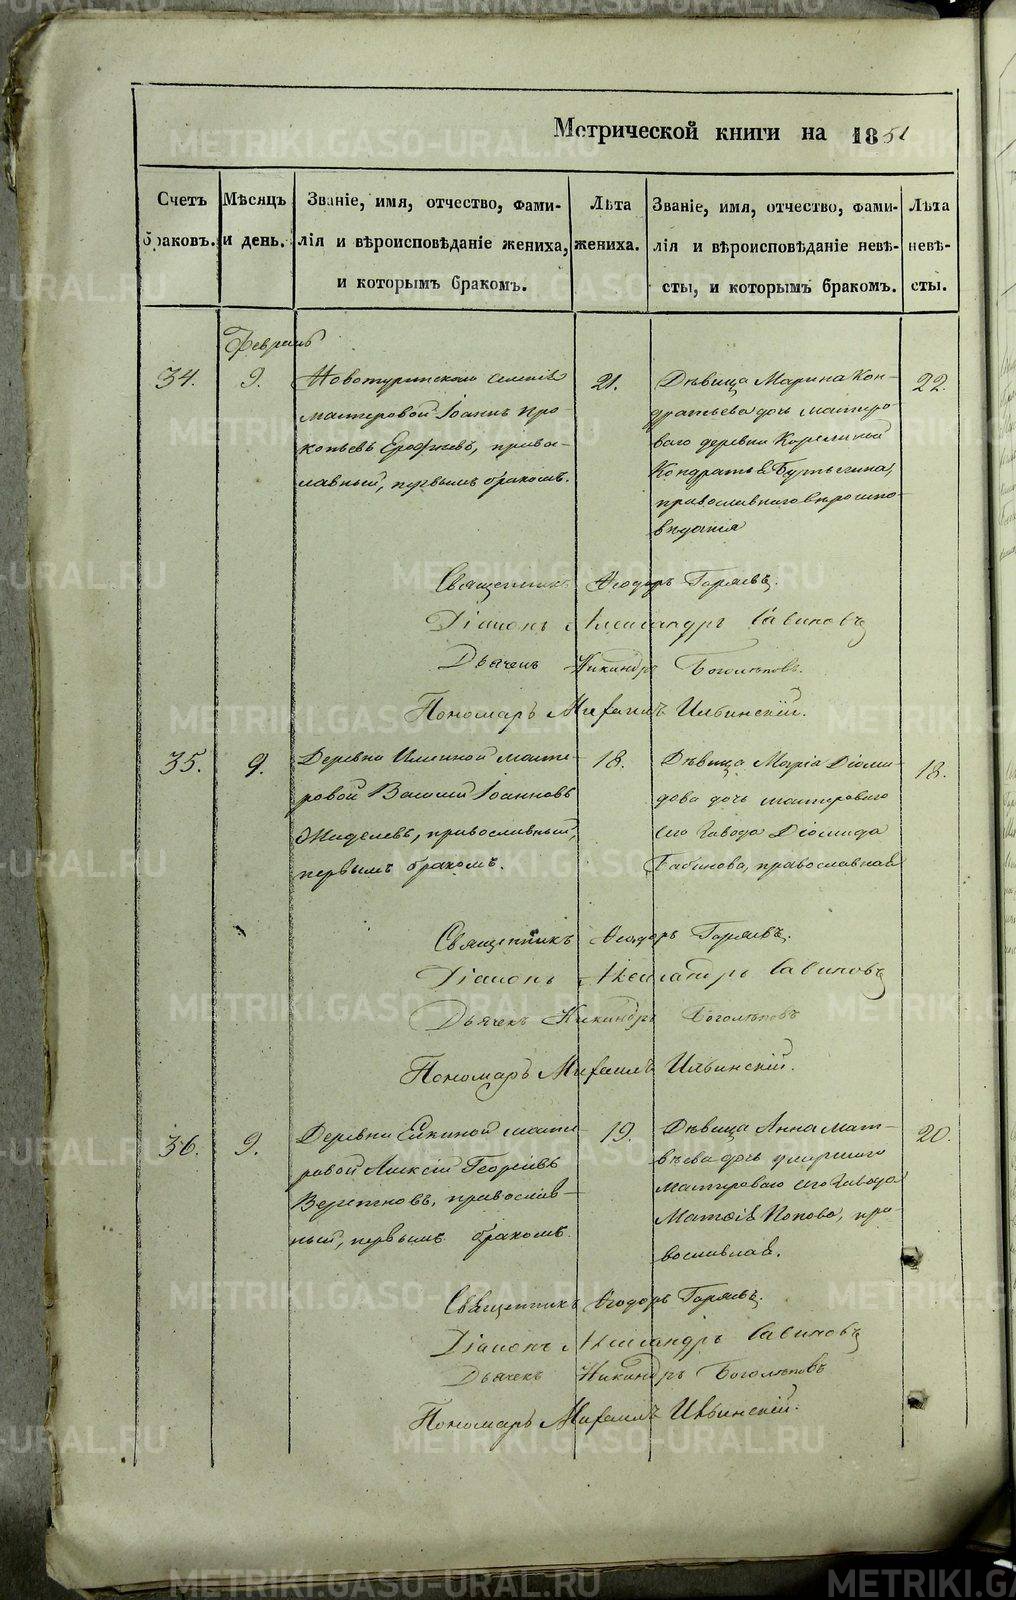 Метрической книги на 1851
Счетъ браковъ.
Мѣсяцъ и день.
Званіе, имя, отчество, фами-
лія и вѣроисповѣданіе жениха,
и которымъ бракомъ.
Лѣта жениха.
Званіе, имя, отчество, фами-
лія и вѣроисповѣданіе невѣ-
сты, и которымъ бракомъ.
Лѣта невѣ-
сты.
Февраль
34.
9.
мастеровой Іоаннъ Про-
копьевъ Ерофѣевъ, право-
славный, первымъ бракомъ.
21.
Дѣвица Марина Кон-
дратьева дочь мастеро-
ваго деревни Корелиной
Кондратья
православнаго вѣроиспо-
вѣданія
22.
Священникъ Ѳеодоръ Горяевъ.
Діаконъ Александръ Савиновъ
Дьячекъ Никандръ Боголѣповъ.
Пономарь Михаилъ Ильинскій.
35.
9.
Деревни масте-
ровой Василій Іоанновъ
православный,
первымъ бракомъ.
18.
Дѣвица Марія Діоми-
дова дочь мастероваго
сего завода Діомида
Бабинова, православная
18.
Священникъ Ѳеодоръ Горяевъ.
Діаконъ Александръ Савиновъ
Дьячекъ Никандръ Боголѣповъ
Пономарь Михаилъ Ильинскій.
36.
9.
Деревни Елкиной масте-
ровой Алексій Георгіевъ
Веретновъ, православ-
ный, первымъ бракомъ.
19.
Дѣвица Анна Мат-
вѣева дочь умершаго
мастероваго сего завода
Матвѣя Попова, пра-
вославная.
20.
Священникъ Ѳеодоръ Горяевъ.
Діаконъ Александръ Савиновъ
Дьячекъ Никандръ Боголѣповъ
Пономарь Михаилъ Ильинскій.
METRIKI.GASO-URAL.RU